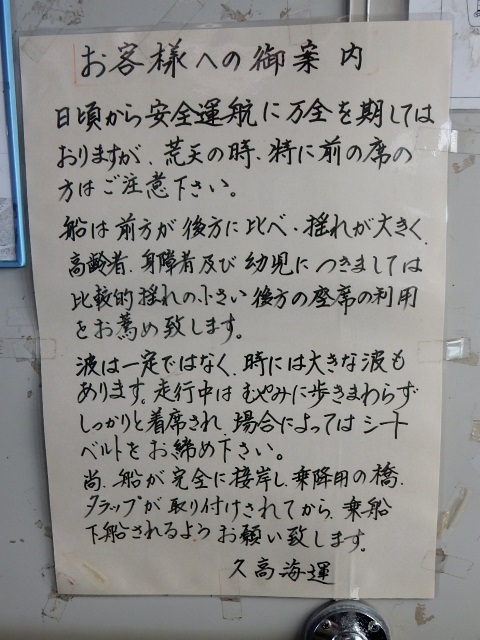 お客様への御案内
日頃から安全運航に万全を期しては
おりますが、荒天の時、特に前の席の
方はご注意下さい。
船は前方が後方に比べ、揺れが大きく、
高齢者、身障者及び幼児につきましては
比較的揺れの小さい後方の座席の利用
をお薦め致します。
波は一定ではなく、時には大きな波も
あります。走行中はむやみに歩きまわらず
しっかりと着席され、場合によってはシート
ベルトをお締め下さい。
尚、船が完全に接岸し、乗降用の橋、
タラップが取り付けされてから、乗船
下船されるようお願い致します。
久高海運